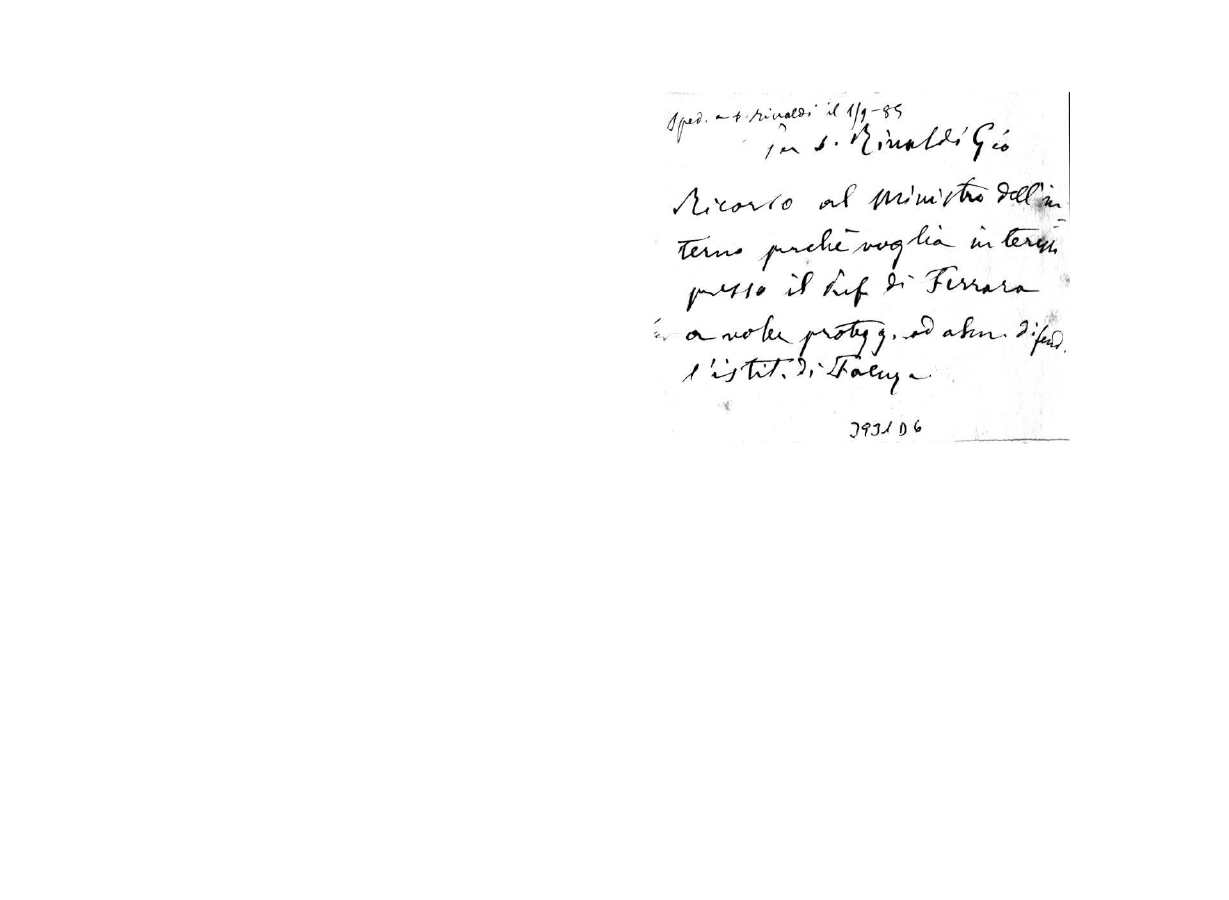 Sped. a d. Rinaldi il 1/9-85
per d. Rinaldi Gio
Ricorso al Ministro dell'in
terno perchè voglia interess
presso il Pref di Ferrara
a voler protegg. ed alm. difend.
l'istit. di Faenza
3931 D 6